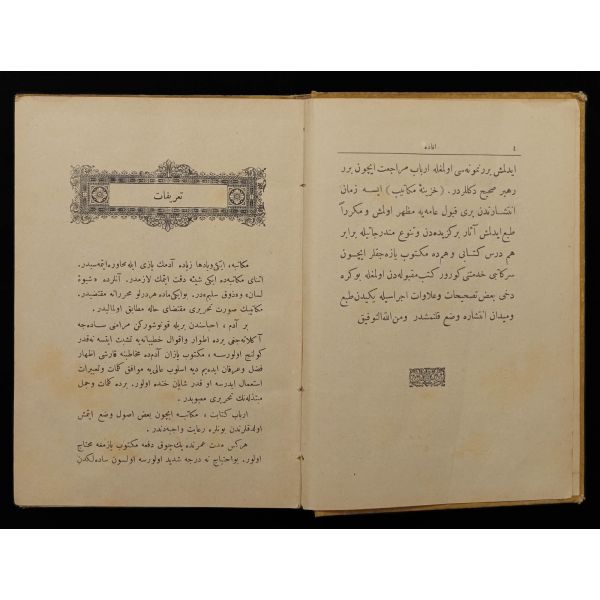 ٤
افاده
ایدلمش برر نمونه‌سی اولمغله ارباب مراجعت ایچون برر
رهبر صحیح دکلدر. (خزینهٔ مکاتیب) ایسه زمان
انتشارندن بری قبول عامه‌یه مظهر اولمش و مکرراً
طبع ایدلمش آثار برکزیده‌دن و تنوع مندرجاتیله برابر
هم درس کتابی و همده مکتوب یازه‌جقلر ایچون
سرکاتبی خدمتی کورور کتب مقبوله‌دن اولمغله بوکره
دخی بعض تصحیحات و علاوات اجراسیله یکیدن طبع
ومیدان انتشاره وضع قلنمشدر ومن الله التوفیق
تعریفات
مکاتبه، ایکی ویا دها زیاده آدمك یازی ایله محاوره ایتمه‌سیدر.
اثنای مکاتبه‌ده ایکی شیئه دقت ایتمك لازمدر. آنلرده «شیوهٔ
لسان» و«ذوق سلیم»در. بو ایکی ماده هر درلو محرراته مقتضیدر.
مکاتیبك صورت تحریری مقتضای حاله مطابق اولمالیدر.
بر آدم، احباسندن بریله قونوشورکن مرامنی ساده‌جه
آکلاتمه‌جنی برده اطوار واقوال خطیبانه‌یه تشبث ایتسه نه‌قدر
کولنج اولورسه، مکتوب یازان آدم‌ده مخاطبنه قارشی اظهار
فضل و عرفان ایده‌یم دیه اسلوب عالی‌یه موافق کلمات وتعبیرات
استعمال ایدرسه او قدر شایان خنده اولور. برده کلمات وجمل
مبتذله‌نك تحریری معیوبدر.
ارباب کتابت، مکاتبه ایچون بعض اصول وضع ایتمش
اولدقلرندن بونلره رعایت واجبه‌دندر.
هرکس مدت عمرنده پك‌چوق دفعه مکتوب یازمغه محتاج
اولور. بو احتیاج نه درجه شدید اولورسه اولسون ساده‌لکدن